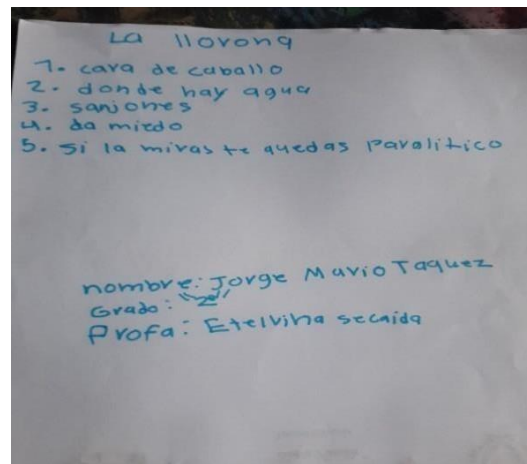 La llorona
1. cara de caballo
2. donde hay agua
3. sanjones
4. da miedo
5. si la miras te quedas paralitico
nombre: Jorge Mario Taquez
Grado: "2"
Profa: Etelvina secaida